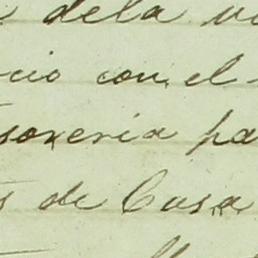 dela
cio con el
soreria pa
s de Casa